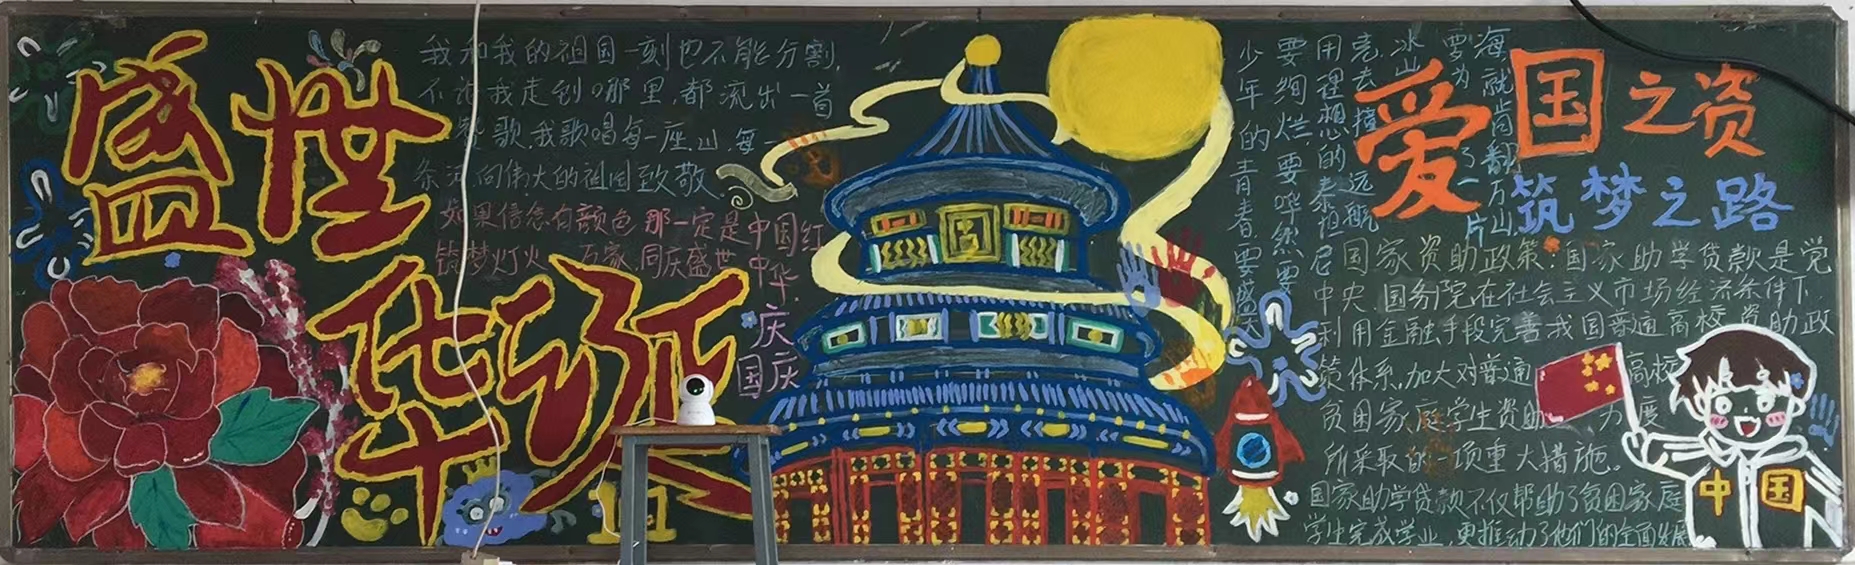 盛世
华诞
我和我的祖国一刻也不能分割,
不论我走到哪里,都流出一首
赞歌.我歌唱每一座山,每一
条河 向伟大的祖国致敬
如果信念有颜色 那一定是中国红
筑梦灯火 万家 同庆盛世中华.
国庆
国
海就肯翻万山
要为了一片
冰山
克去撞远航
用理想的泰坦尼
要绚烂,要哗然要
少年的青春要盛大
爱国之资
筑梦之路
国家资助政策:国家助学贷款是党
中央、国务院在社会主义市场经济条件下,
利用金融手段完善我国普通高校资助政
策体系,加大对普通高校
贫困家庭学生资助力度
所采取的一项重大措施。
国家助学贷款不仅帮助了贫困家庭
学生完成学业,更推动了他们的全面发展
中国